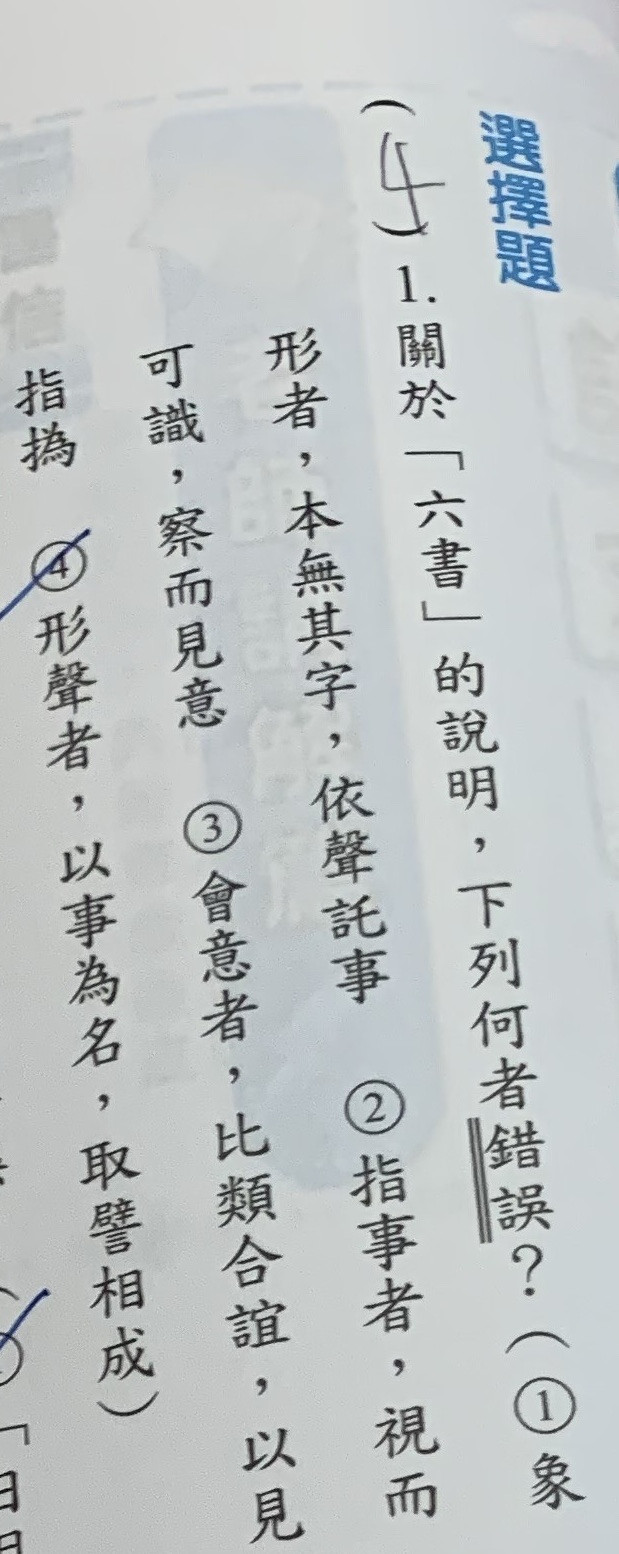 選擇題
(4) 1.關於「六書」的說明，下列何者錯誤？（①象
形者，本無其字，依聲託事　②指事者，視而
可識，察而見意　③會意者，比類合誼，以見
指撝　④形聲者，以事為名，取譬相成）